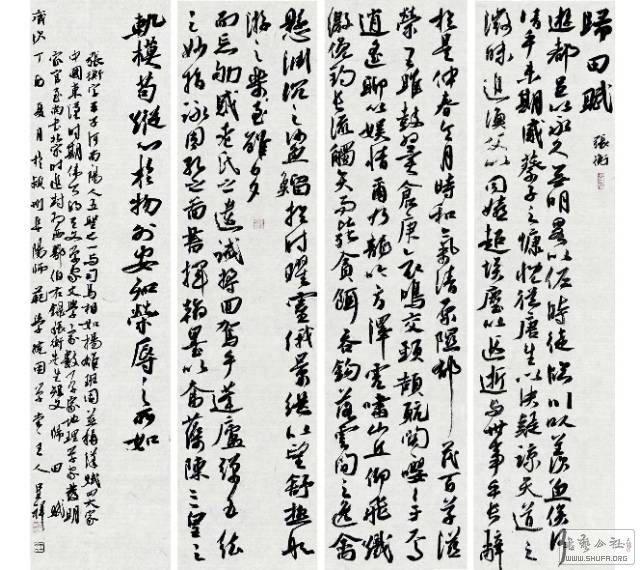 歸田賦
張衡
遊都邑以永久無明略以佐時徒臨川以羨魚俟河
清乎未期感蔡子之慷慨從唐生以決疑諒天道之
微昧追漁父以同嬉超埃塵以遐逝與世事乎長辭
於是仲春令月時和氣清原隰鬱茂百草滋
榮王雎鼓翼倉庚哀鳴交頸頡頏關關嚶嚶于焉
逍遙聊以娛情爾乃龍吟方澤虎嘯山丘仰飛纖
繳俯釣長流觸矢而斃貪餌吞鉤落雲間之逸禽
懸淵沉之魦鰡於時曜靈俄景繼以望舒極般
游之樂至雖夕
而忘劬感老氏之遺誡將回駕乎蓬廬彈五絃
之妙指詠周孔之圖書揮翰墨以奮藻陳三皇之
軌模苟縱心於物外安知榮辱之所如
張衡字平子河南南陽人五聖之一與司馬相如揚雄班固並稱漢賦四大家
中國東漢時期偉大的天文學家文學家數學家地理學家發明
家官至尚書 西鄂伯右錄張衡先生短文歸田賦
歲次丁酉夏月於潁州阜陽師範學院田學堂主人呈祥
书艺公社
WWW.SHUFA.ORG